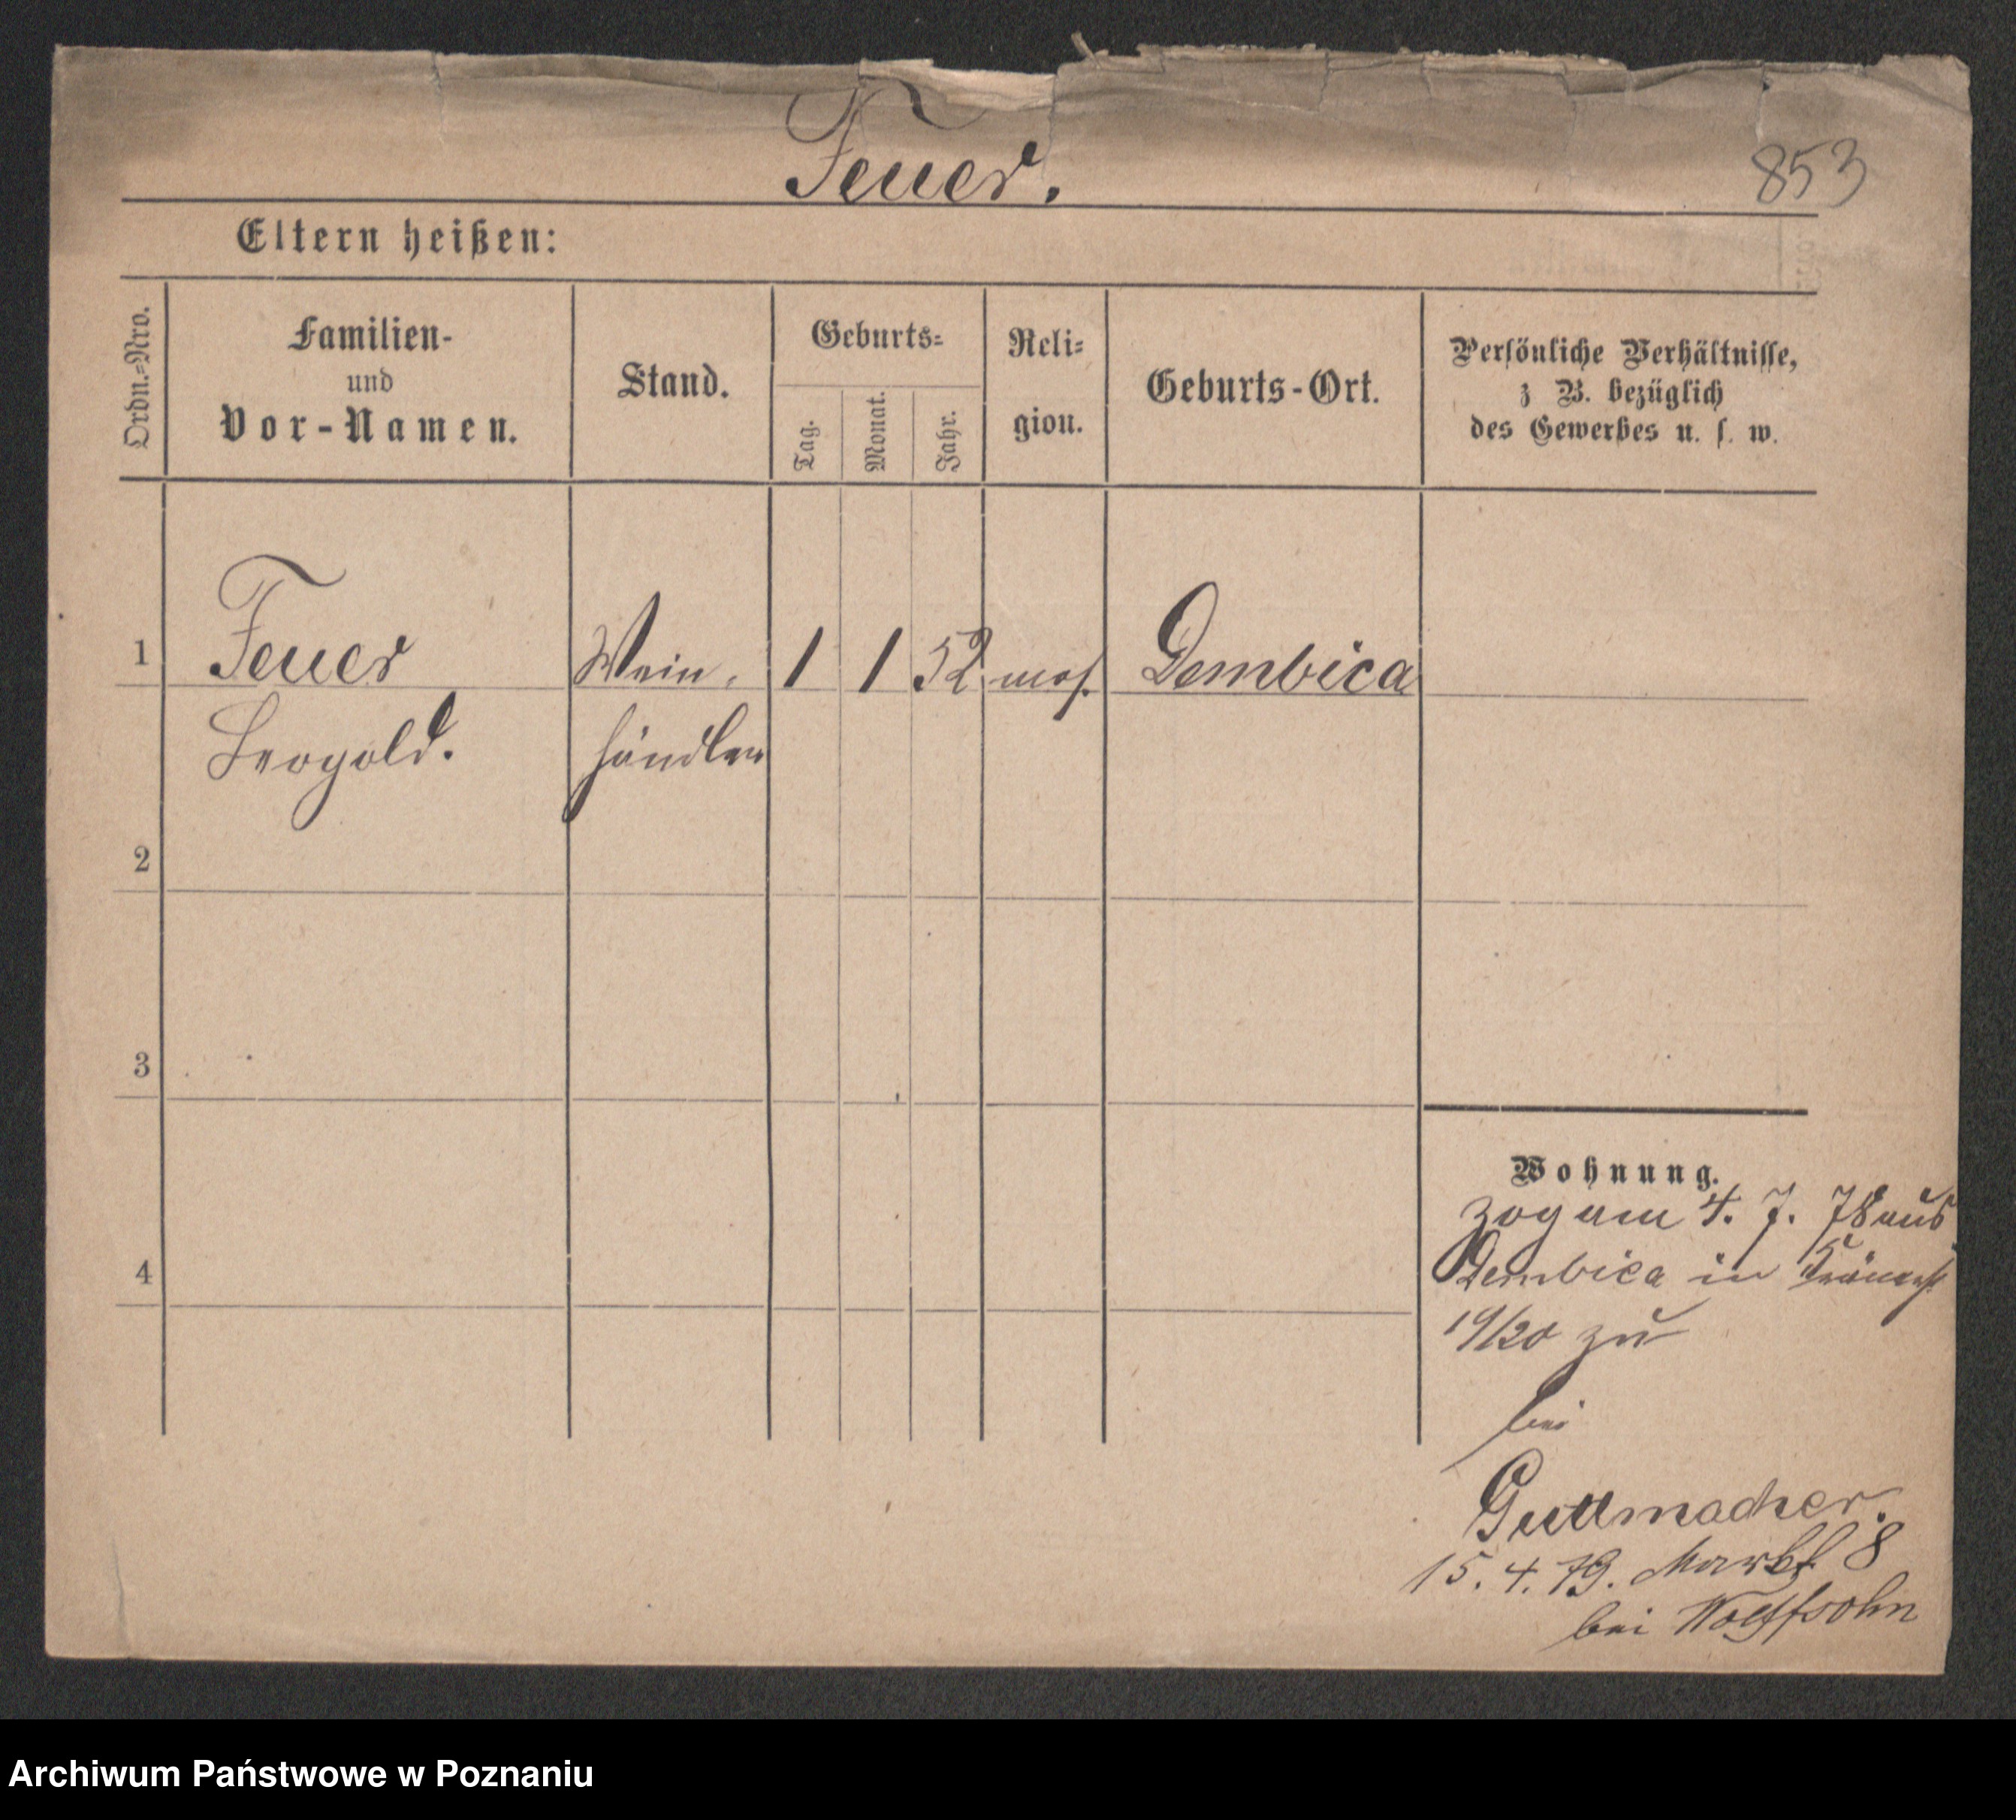 Feuer.
853
Eltern heißen:
Ordn.=Nro.
Familien-
und
Vor-Namen.
Stand.
Geburts=
Tag.
Monat.
Jahr.
Reli=
gion.
Geburts-Ort.
Persönliche Verhältnisse,
z B. bezüglich
des Gewerbes u. s. w.
1 Feuer Wein- 1 1 52 mos. Dembica
Leopold. händler
2
3
4
Wohnung.
zog am 4. 7. 78 aus
Dembica in
19/20 zu
bei
Guttmacher.
15. 4. 79. Markt 8
bei Wolffsohn
Archiwum Państwowe w Poznaniu